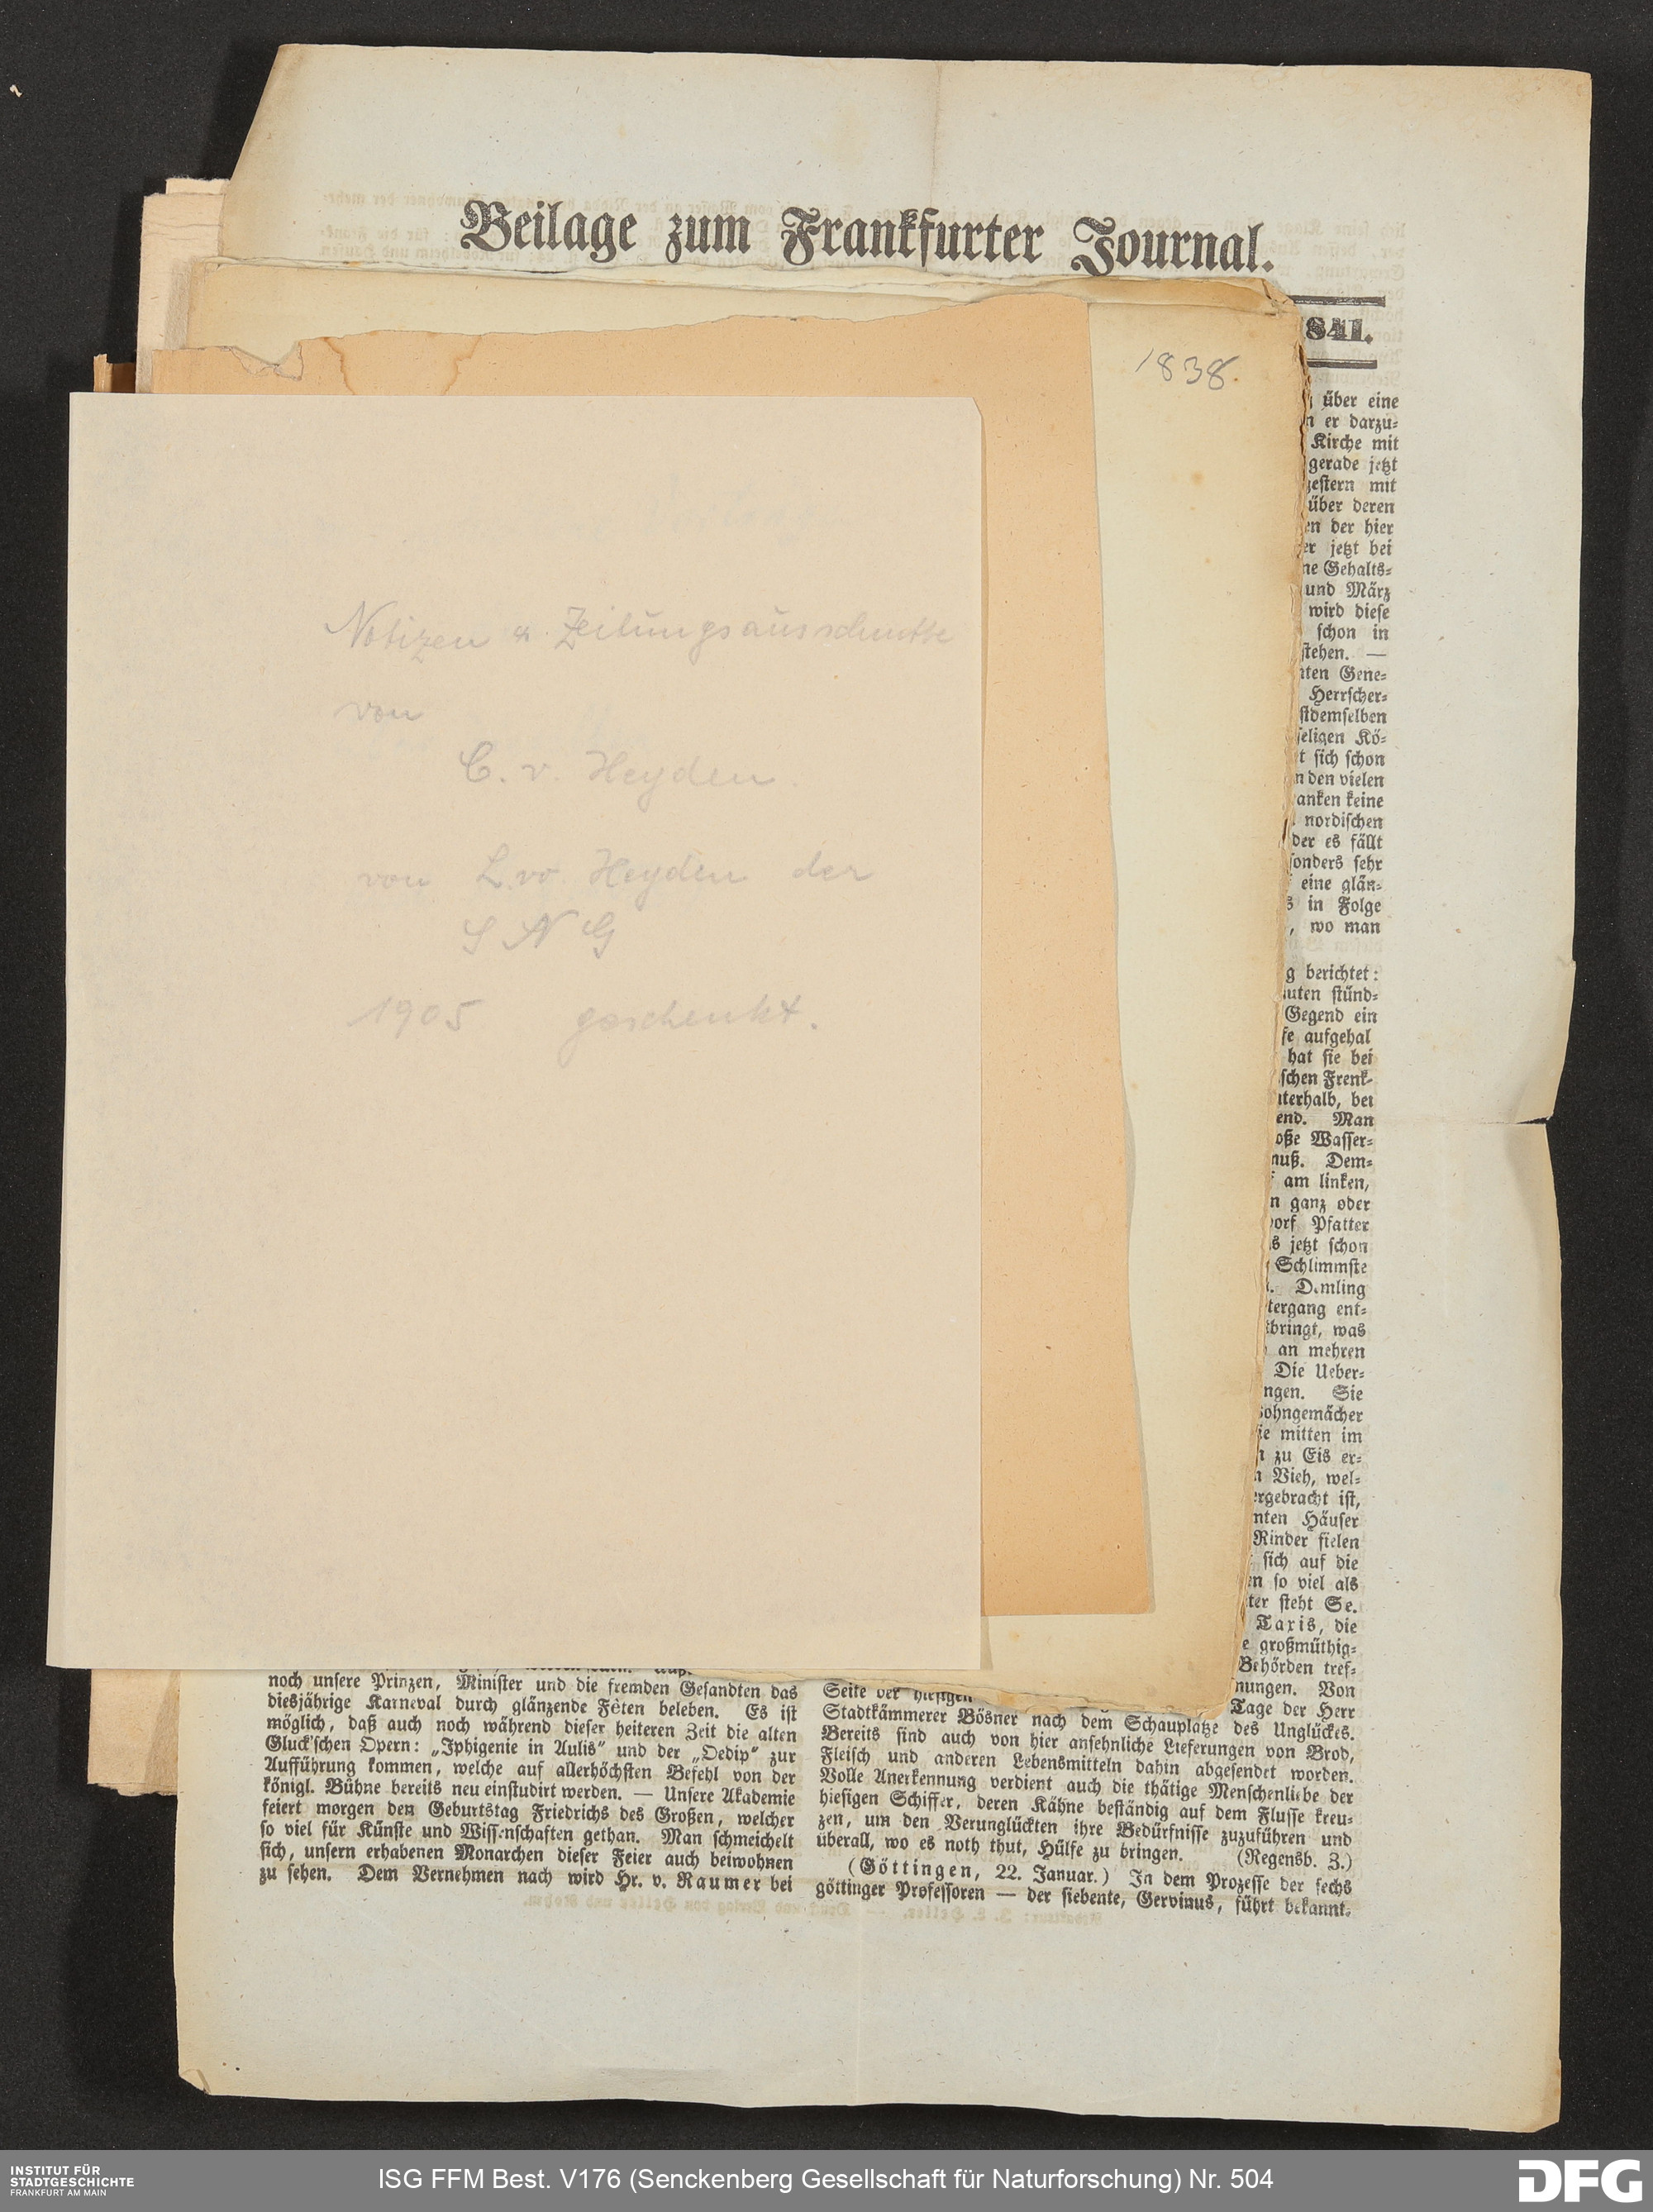 Beilage zum Frankfurter Journal.
841.
1838.
Notizen & Zeitungsausschnitte
von
C. v. Heyden.
von L. v. Heyden der
S N G
1905 geschenkt.
über eine
er darzu-
Kirche mit
gerade jetzt
gestern mit
über deren
der hier
jetzt bei
Gehalts-
und März
wird diese
schon in
stehen. —
Gene-
Herrscher-
stdemselben
seligen Kö-
sich schon
den vielen
keine
nordischen
der es fällt
sonders sehr
eine glän-
in Folge
, wo man
berichtet:
stünd-
Gegend ein
aufgehal
hat sie bei
schen Frenk-
terhalb, bei
end. Man
oße Wasser-
muß. Dem-
am linken,
ganz oder
orf Pfatter
jetzt schon
Schlimmste
D.mling
tergang ent-
bringt, was
an mehren
Die Ueber-
ngen. Sie
ohngemächer
mitten im
zu Eis er-
Vieh, wel-
ergebracht ist,
nten Häuser
Rinder fielen
sich auf die
so viel als
ter steht Se.
Taxis, die
großmüthig-
Behörden tref-
noch unsere Prinzen, Minister und die fremden Gesandten das
diesjährige Karneval durch glänzende Fêten beleben. Es ist
möglich, daß auch noch während dieser heiteren Zeit die alten
Gluck'schen Opern: „Iphigenie in Aulis“ und der „Oedip“ zur
Aufführung kommen, welche auf allerhöchsten Befehl von der
königl. Bühne bereits neu einstudirt werden. — Unsere Akademie
feiert morgen den Geburtstag Friedrichs des Großen, welcher
so viel für Künste und Wissenschaften gethan. Man schmeichelt
sich, unsern erhabenen Monarchen dieser Feier auch beiwohnen
zu sehen. Dem Vernehmen nach wird Hr. v. Raumer bei
Seite der hiesigen nungen. Von
Tage der Herr
Stadtkämmerer Bösner nach dem Schauplatze des Unglückes.
Bereits sind auch von hier ansehnliche Lieferungen von Brod,
Fleisch und anderen Lebensmitteln dahin abgesendet worden.
Volle Anerkennung verdient auch die thätige Menschenliebe der
hiesigen Schiffer, deren Kähne beständig auf dem Flusse kreu-
zen, um den Verunglückten ihre Bedürfnisse zuzuführen und
überall, wo es noth thut, Hülfe zu bringen. (Regensb. Z.)
(Göttingen, 22. Januar.) In dem Prozesse der sechs
göttinger Professoren — der siebente, Gervinus, führt bekannt-
INSTITUT FÜR
STADTGESCHICHTE
FRANKFURT AM MAIN
ISG FFM Best. V176 (Senckenberg Gesellschaft für Naturforschung) Nr. 504
DFG